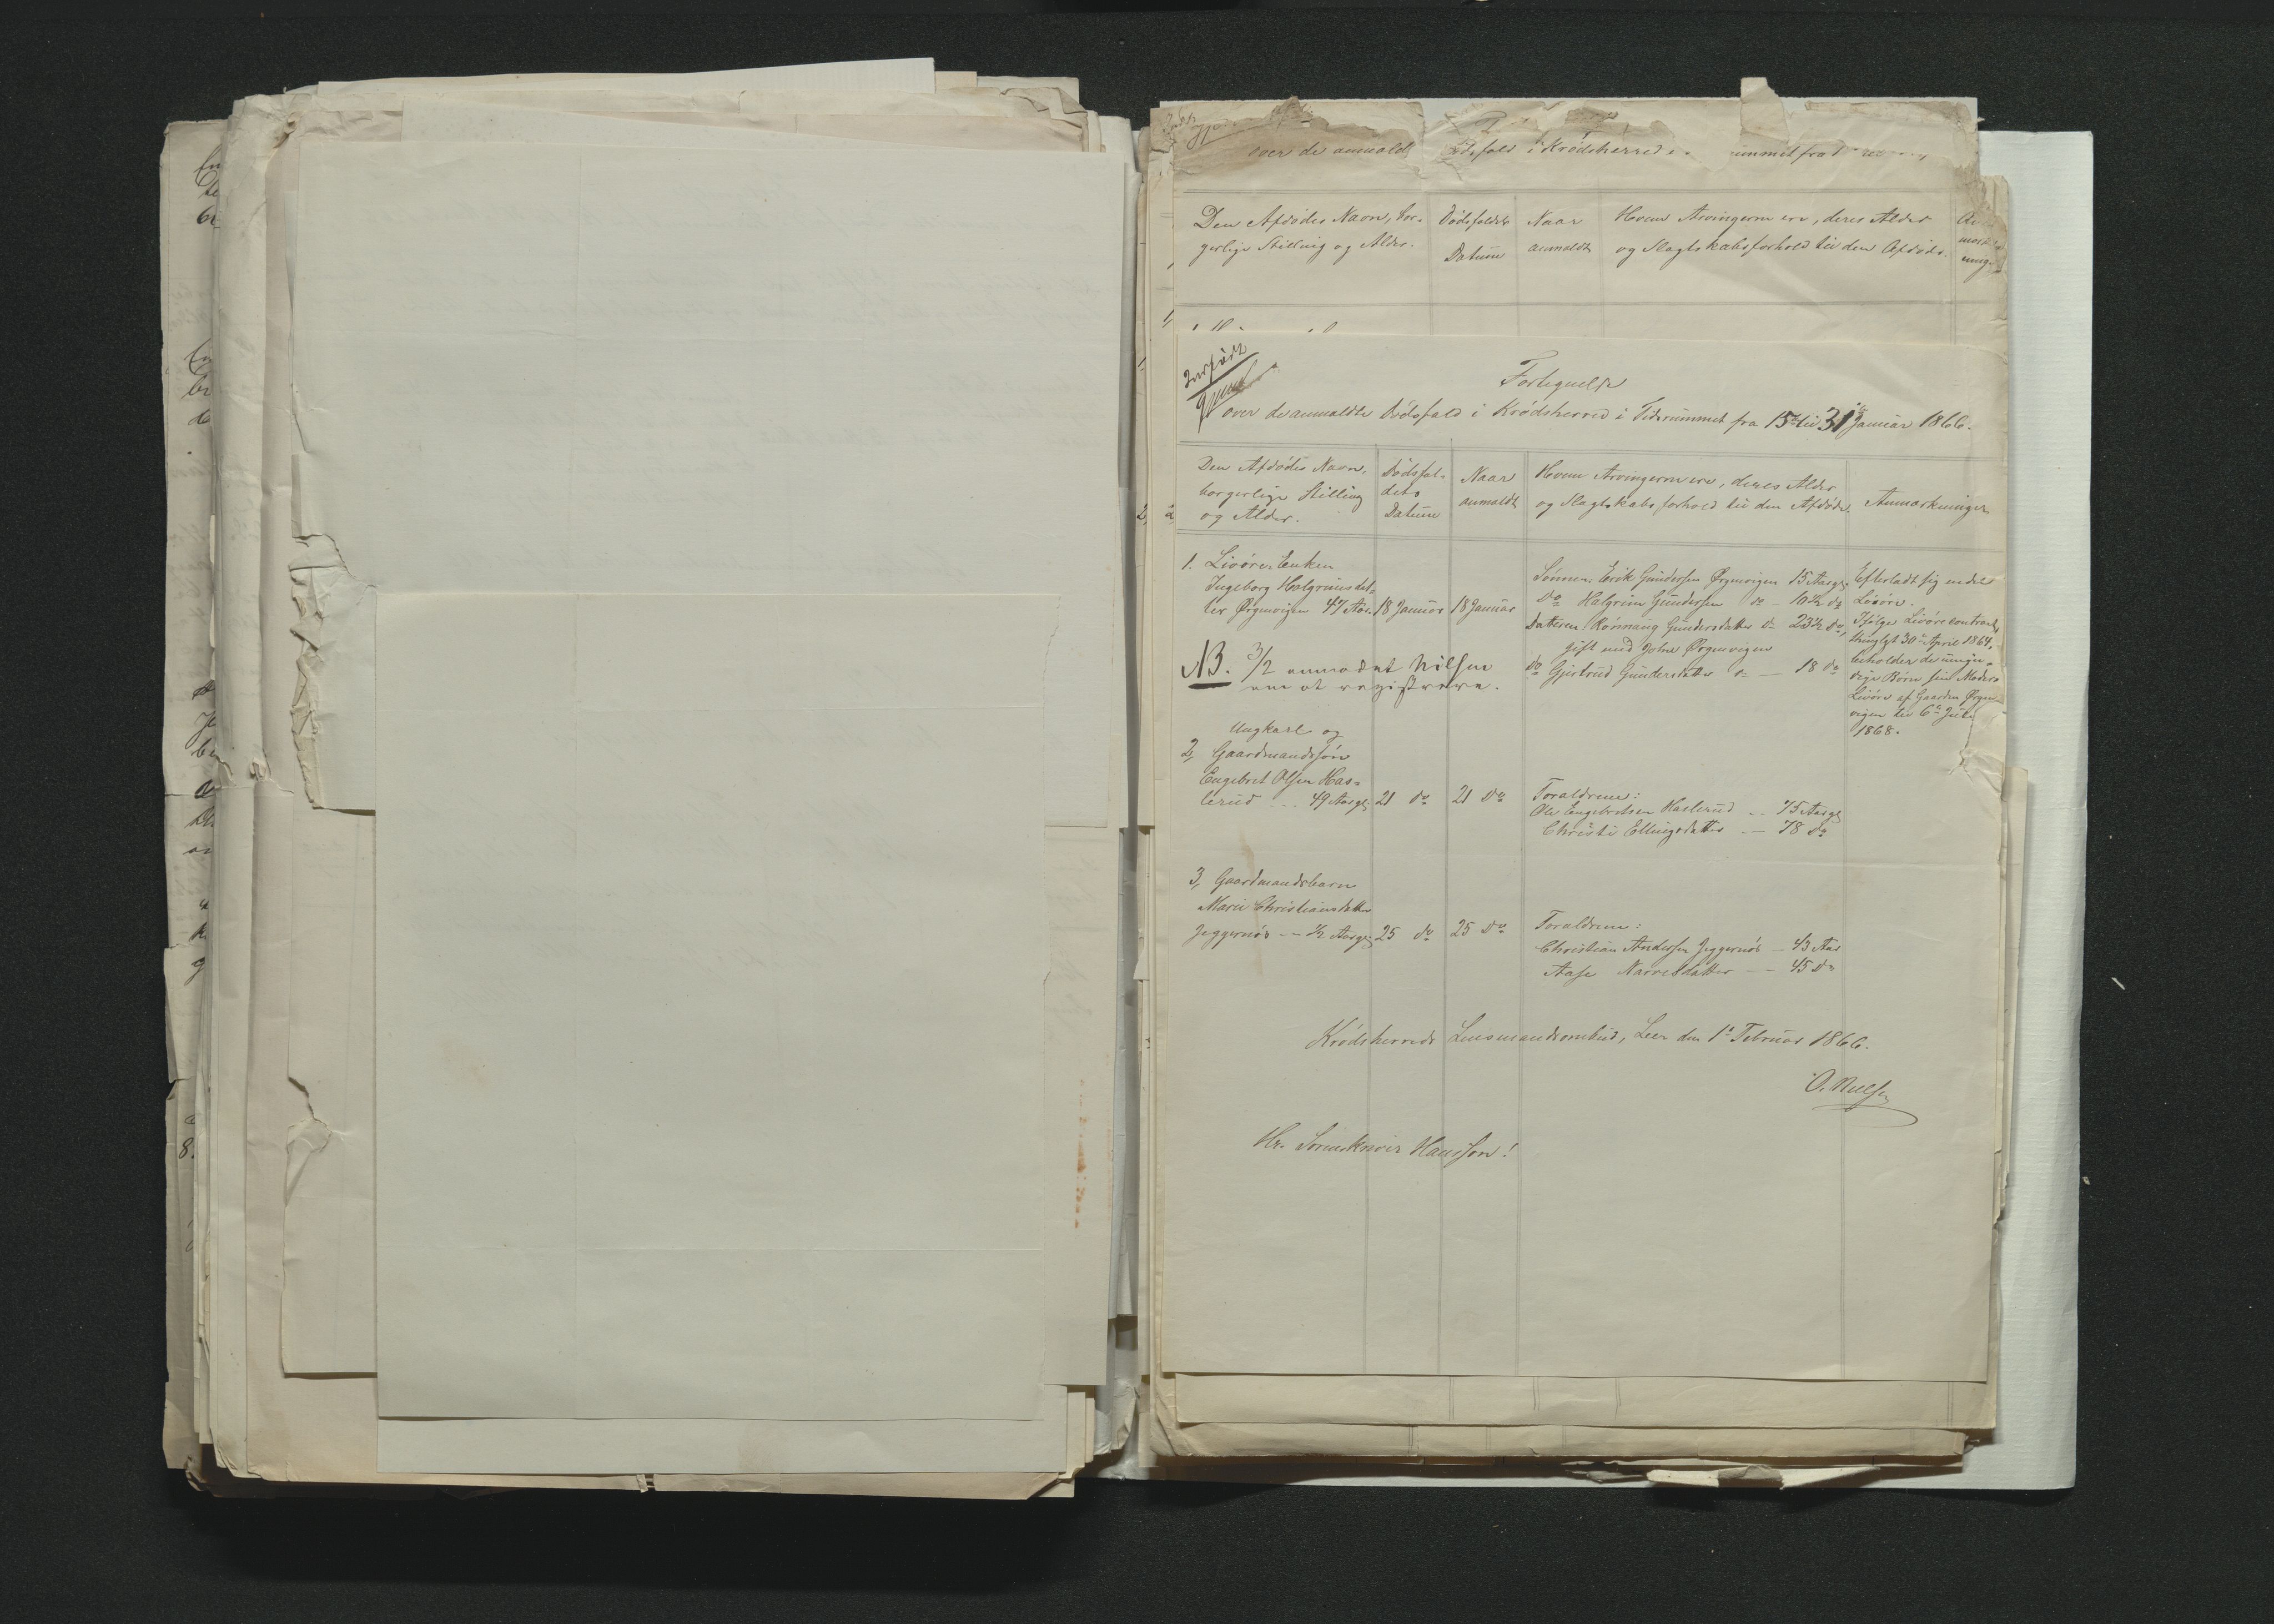 over de anmeldte Dødsfald i Krødsherred i
Den Afdødes Navn, bor-
gerlige Stilling og Alder.
Dødsfaldets
Datum
Naar
anmeldt
Hvem Arvingerne ere, deres Alder
og Slægtskabsforhold til den Afdøde.
Indført
Fortegnelse
over de anmeldte Dødsfald i Krødsherred i Tidsrummet fra 15de til 31te Januar 1866.
Den Afdødes Navn,
borgerlige Stilling
og Alder.
Dødsfal-
dets
Datum
Naar
anmeldt
Hvem Arvingerne ere, deres Alder
og Slægtskabsforhold til den Afdøde.
Anmærkninger
1. Livøres Enken
Ingeborg Halgrimsdat-
ter Ørgenvigen 47 Aar
18 Januar
18 Januar
Sønnen: Erik Gundersen Ørgenvigen 15 Aar gl.
Do Halgrim Gundersen do - 10½ do
Datteren: Rønnaug Gundersdatter do 23½ do,
gift med John Ørgenvigen
do Gjertrud Gundersdatter do — 18 do
Efterladt sig endel
Løsøre.
Ifølge Livørecontract,
thinglyst 30te April 1864,
beholder de umyn-
dige Børn sin Moders
Livøre af Gaarden Ørgen-
vigen til 6te Juli
1868.
NB. 3/2 anmodet Nilsen
om at registrere.
Ungkarl og
2, Gaardmandssøn
Engebret Olsen Has-
lerud - - 49 Aar gl.
21 do
21 do
Forældrene:
Ole Engebretsen Haslerud - - 75 Aar gl
Christi Ellingsdatter - — 78 do
3, Gaardmandsbarn
Marie Christiansdatter
Jeggernös - - ½ Aar gl
25 do
25 do
Forældrene:
Christian Andersen Jeggernös — 43 Aar
Aase Narvesdatter - - 45 do
Krødsherreds Lensmandsombud, Leer den 1te Februar 1866.
O. Nielsen
Hr. Sorenskriver Hansson!